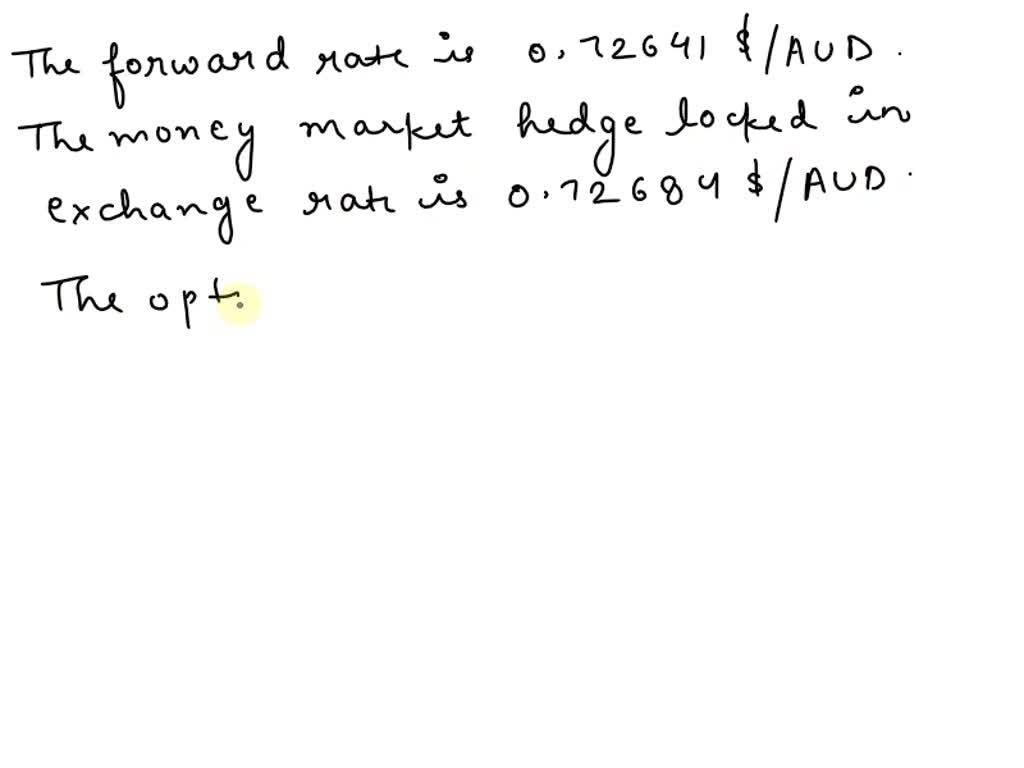 The forward rate is 0.72641 $/AUD.
The money market hedge locked in
exchange rate is 0.72684 $/AUD.
The opt